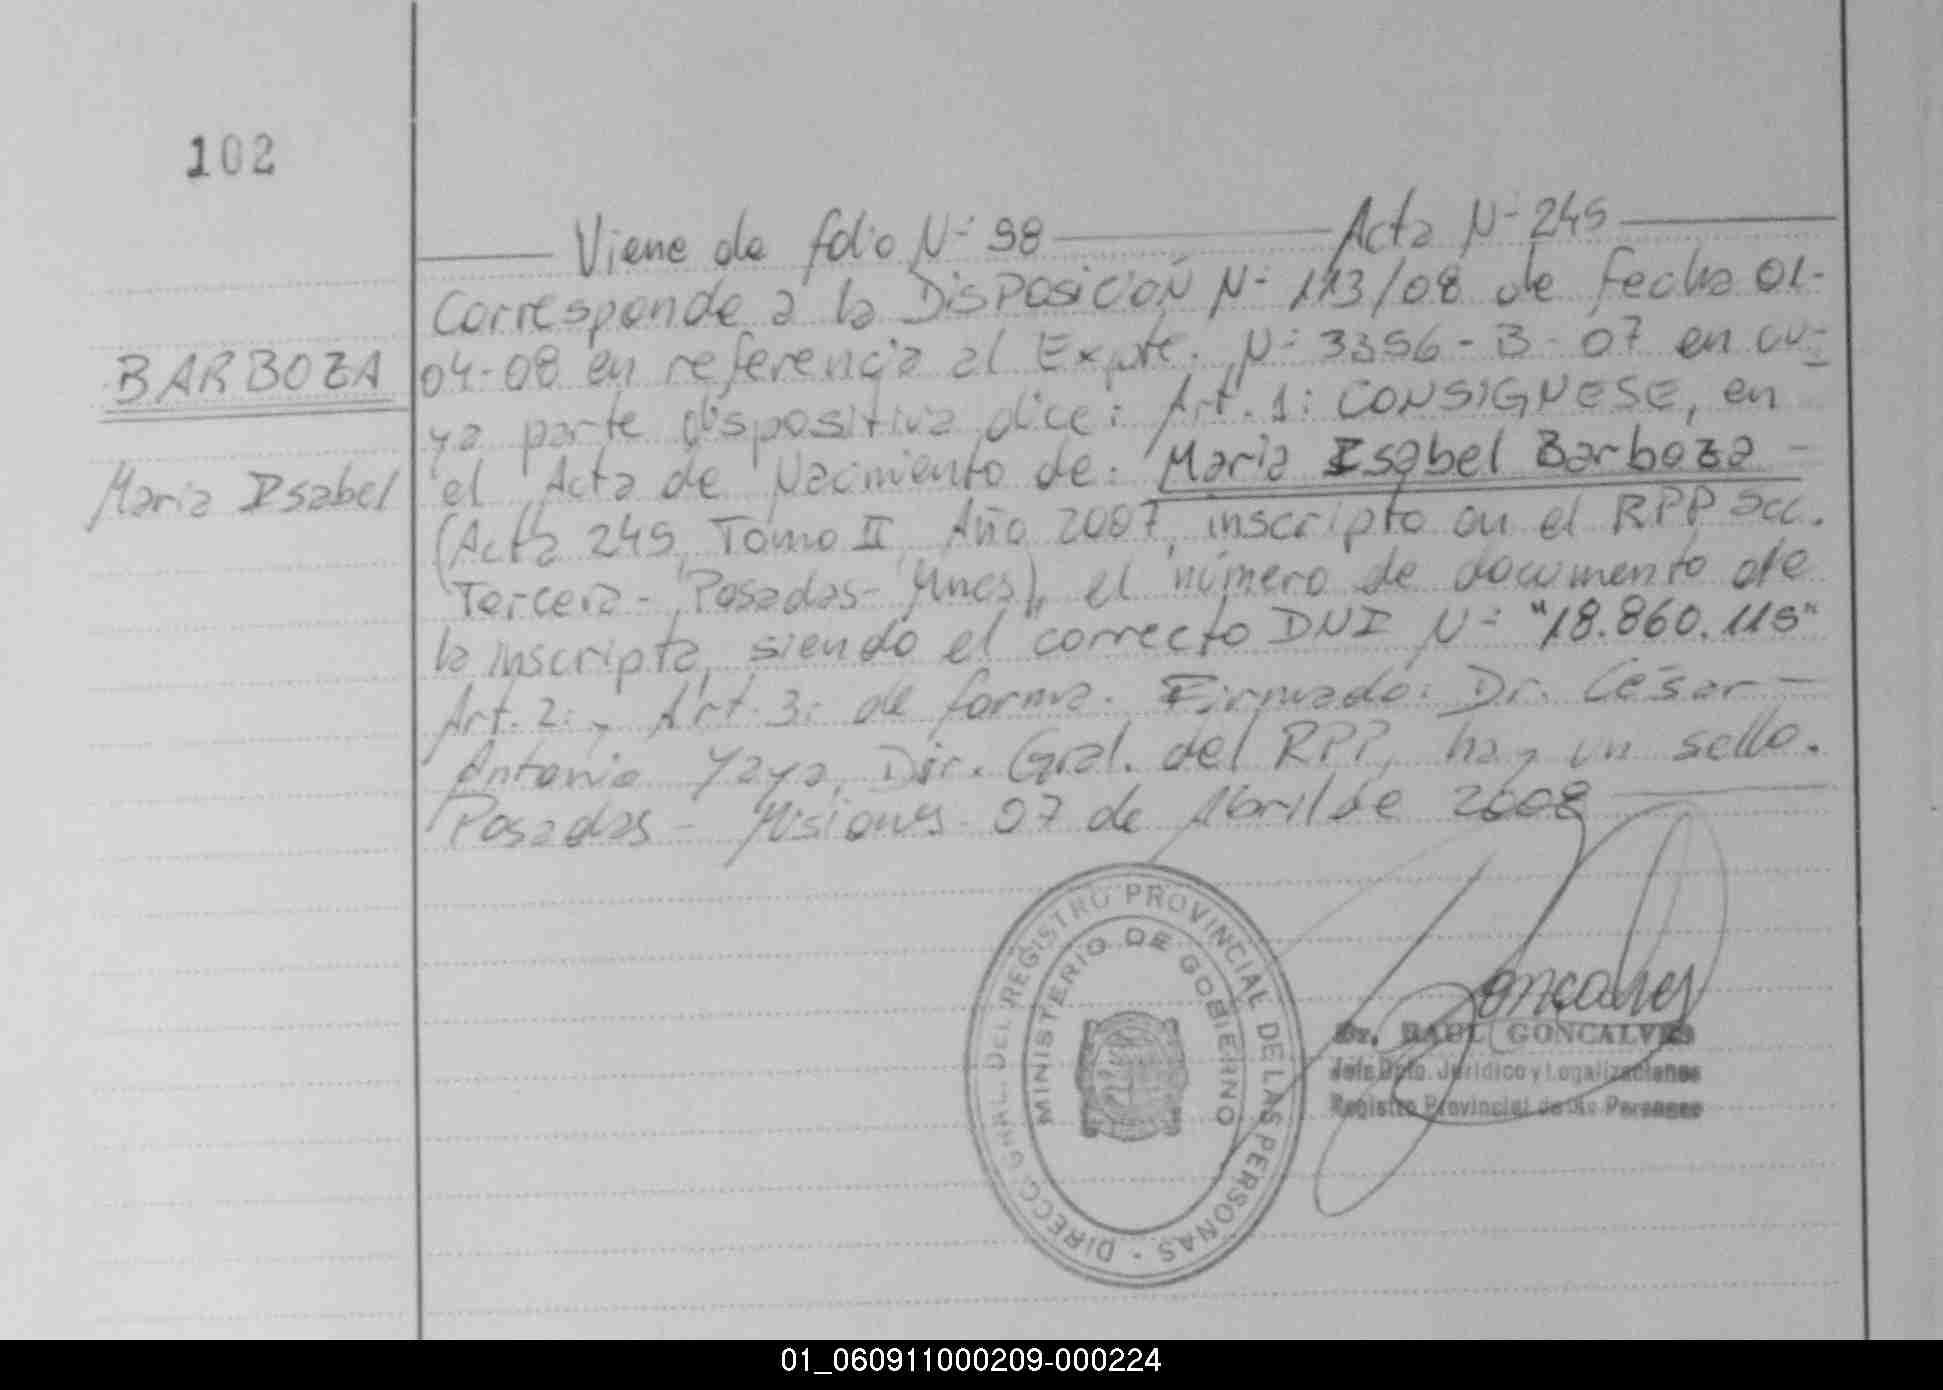 102
Viene de folio N° 98 Acta N° 245
BARBOZA
Maria Isabel
Corresponde a la DISPOSICIÓN N° 113/08 de fecha 01-
04-08 en referencia al Expte. N° 3356-B-07 en cu-
ya parte dispositiva dice: Art. 1: CONSIGNESE, en
el Acta de Nacimiento de: Maria Isabel Barboza -
(Acta 245, Tomo II, Año 2007, inscripto en el RPP Scc.
Tercera - Posadas - Mnes), el número de documento de
la inscripta, siendo el correcto DNI N° "18.860.115"
Art. 2: , Art. 3: de forma. Firmado: Dr. César -
Antonio Yaya, Dir. Gral. del RPP, hay un sello.
Posadas - Misiones 07 de Abril de 2008
DIRECC. GRAL. DEL REGISTRO PROVINCIAL DE LAS PERSONAS -
MINISTERIO DE GOBIERNO
Goncalves
Dr. RAUL GONCALVES
Jefe Dpto. Jurídico y Legalizaciones
Registro Provincial de las Personas
01_060911000209-000224